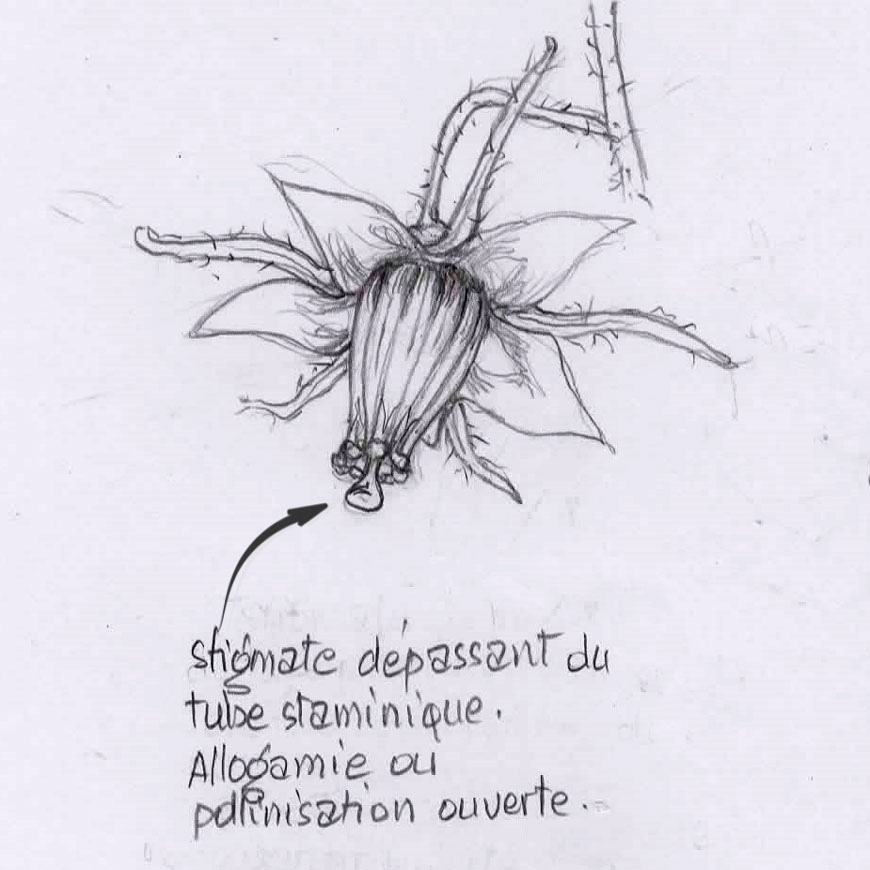 stigmate dépassant du
tube staminique.
Allogamie ou
pollinisation ouverte.